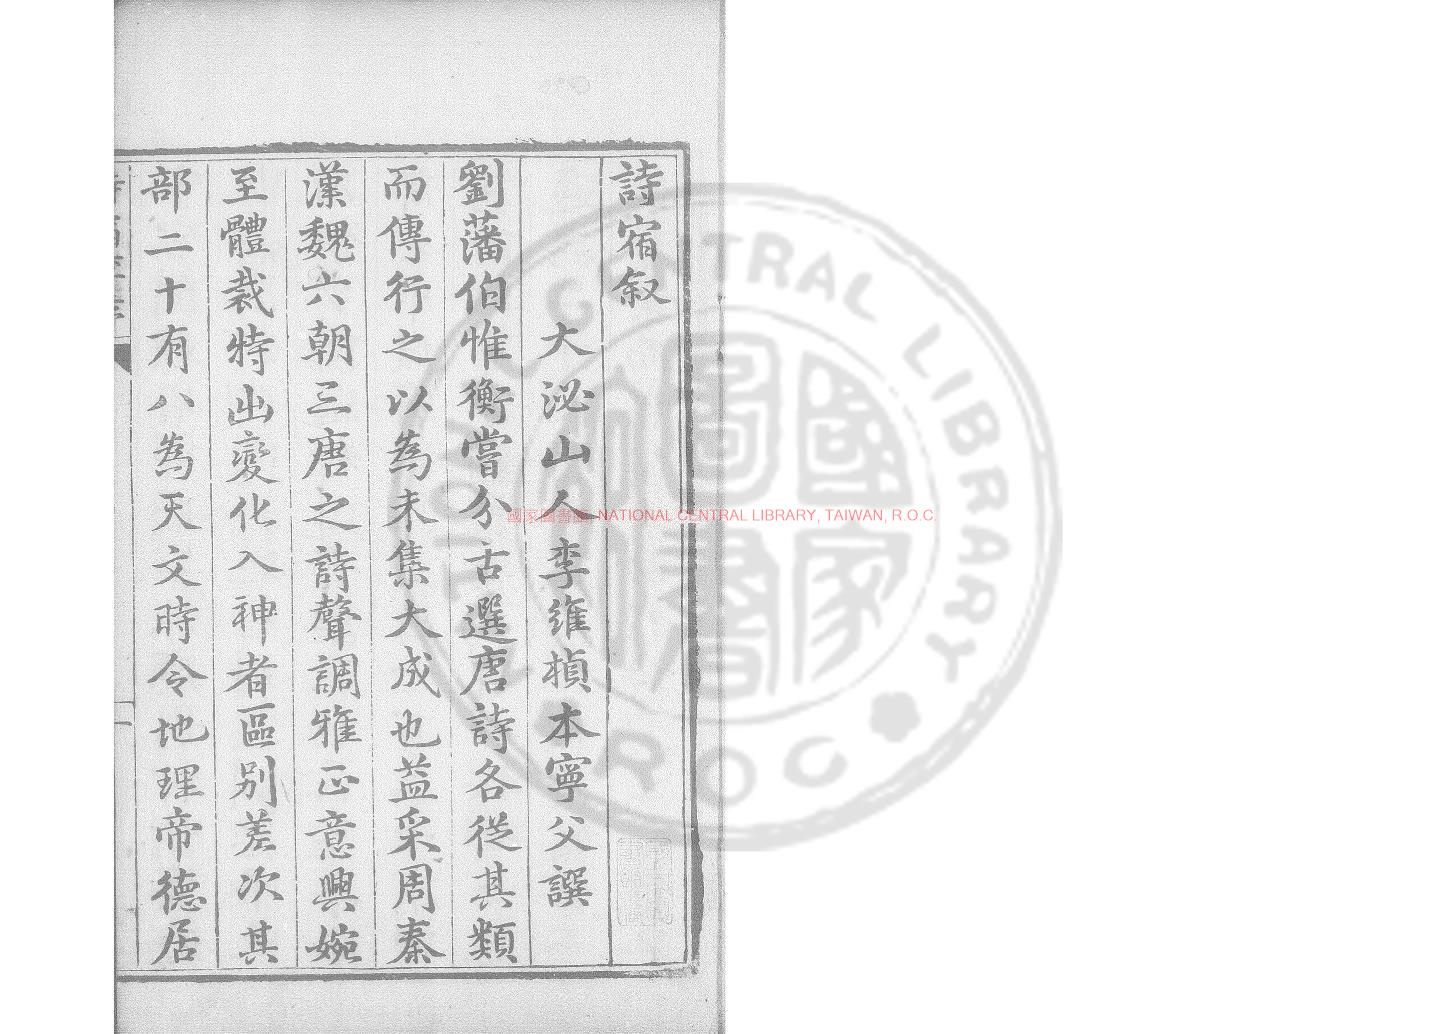 詩宿叙
大泌山人李維楨本寧父譔
劉藩伯惟衡嘗分古選唐詩各從其類
而傳行之以為未集大成也益采周秦
漢魏六朝三唐之詩聲調雅正意興婉
至體裁特出變化入神者區別差次其
部二十有八為天文時令地理帝德居
國家圖書館 NATIONAL CENTRAL LIBRARY, TAIWAN, R.O.C.
CENTRAL LIBRARY
ROC
國家圖書